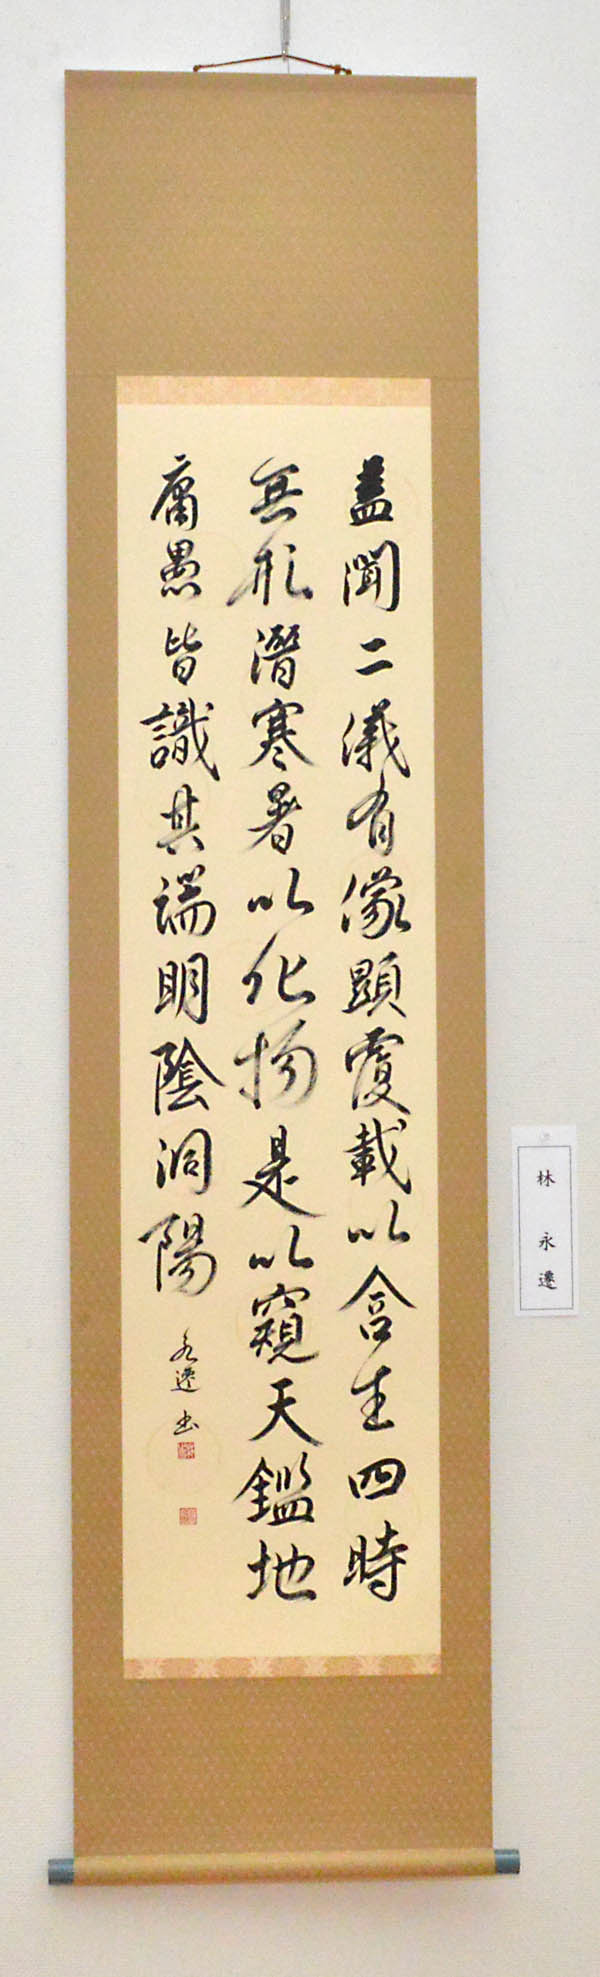 蓋聞二儀有像顕覆載以含生四時
無形潛寒暑以化物是以窺天鑑地
庸愚皆識其端明陰洞陽
永遷書
林 永遷